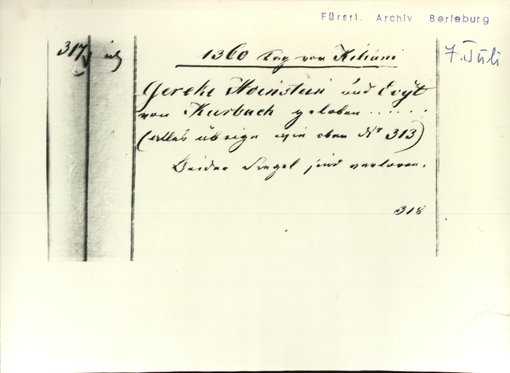 Fürstl. Archiv Berleburg
7. Juli
317
1360 Tag vor Kiliani
Gereke Hoenstein und
von Kurbach geloben . . . . .
(Alles übrige wie oben No 313)
Beider Siegel sind verloren.
318